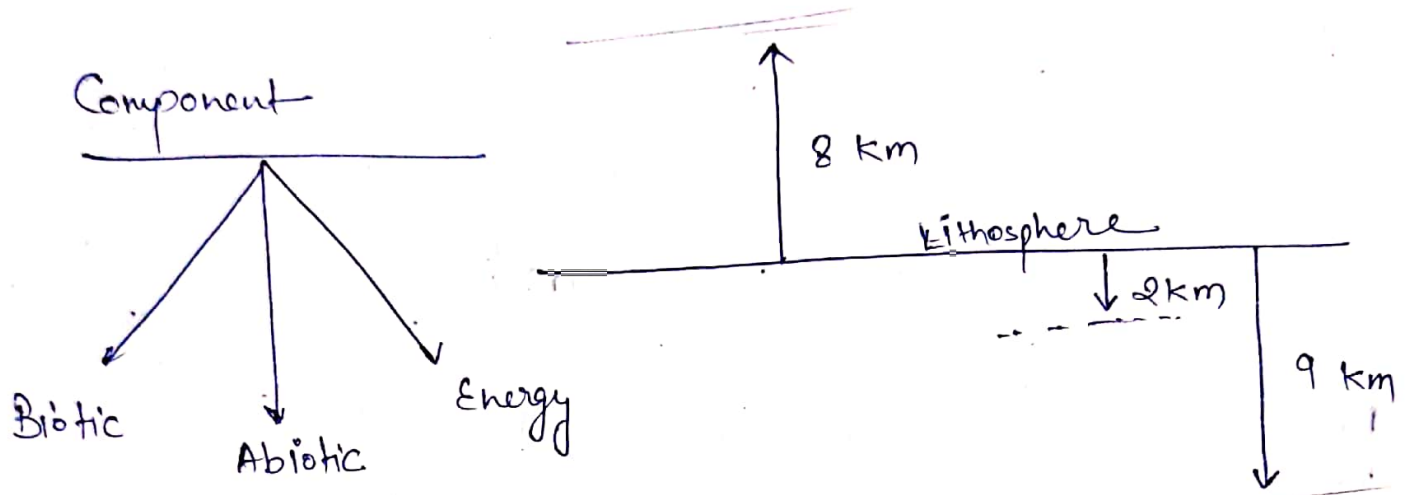 Component
Biotic
Abiotic
Energy
8 km
Lithosphere
2km
9 km